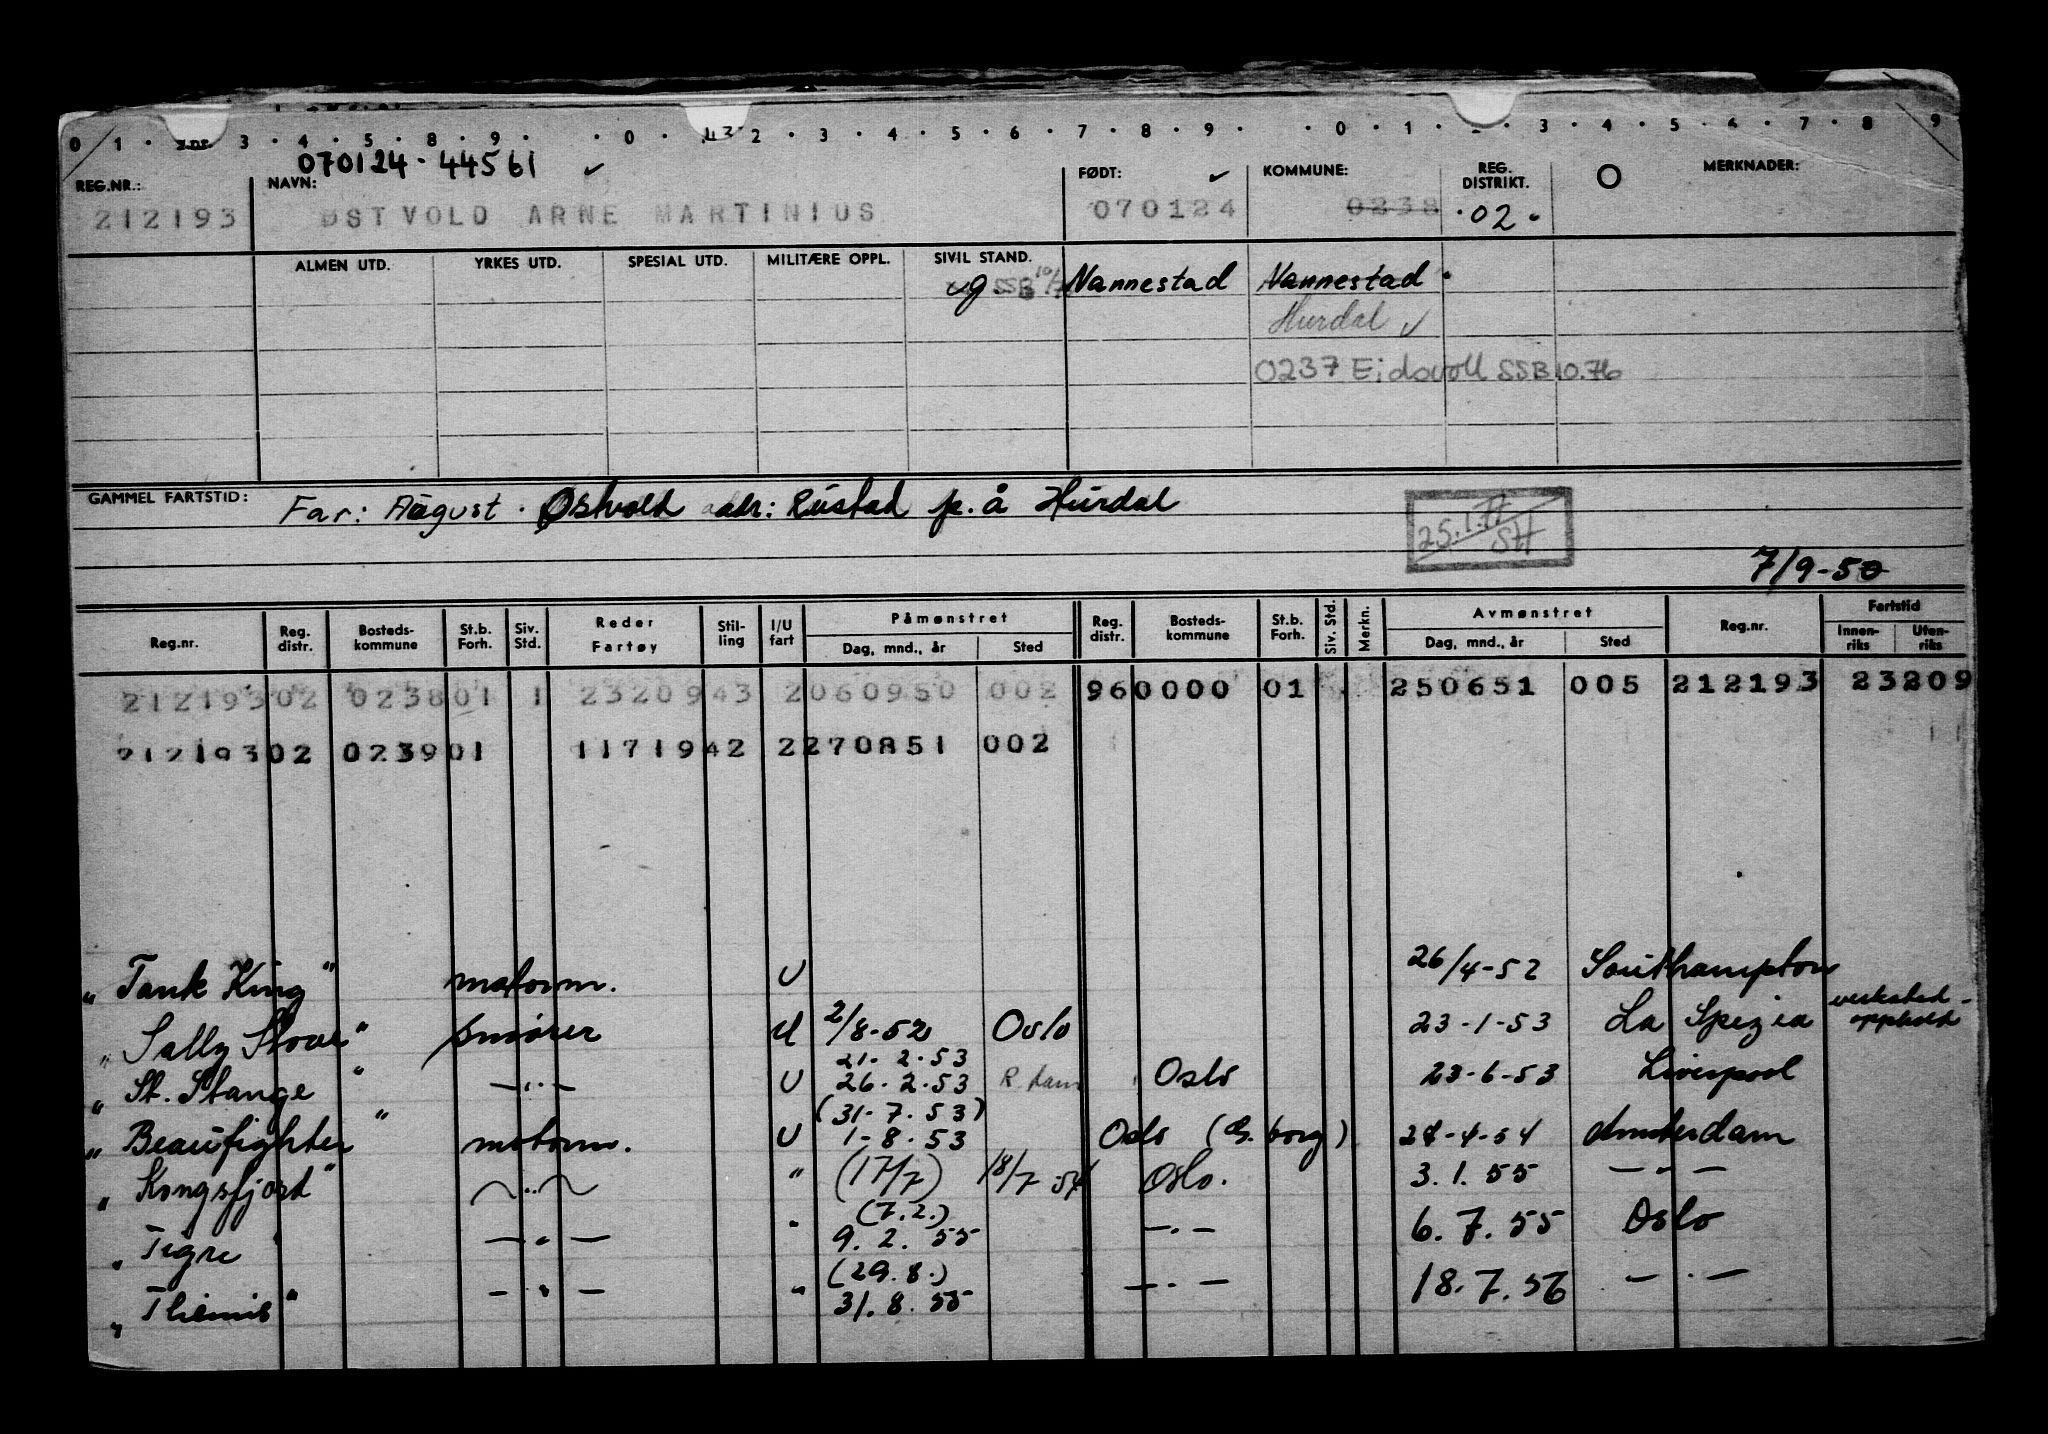 0 1 . 3 . 4 . 5 . 8 . 9 . . 0 . 2 . 3 . 4 . 5 . 6 . 7 . 8 . 9 . . 0 . 1 . 3 . 4 . 5 . 6 . 7 . 8 9
070124-44561 ✓
REG.NR.: NAVN: FØDT: ✓ KOMMUNE: REG. DISTRIKT. O MERKNADER:
212193 ØSTVOLD ARNE MARTINIUS 070124 0238 02
ALMEN UTD. YRKES UTD. SPESIAL UTD. MILITÆRE OPPL. SIVIL STAND.
ug. SSB Nannestad Nannestad
Hurdal ✓
0237 Eidsvoll SSB 10.76
GAMMEL FARTSTID: Far: August Østvold adr: Rustad p.å Hurdal
25.1.71 SH
7/9-50
Reg.nr. Reg. distr. Bosteds-kommune St.b. Forh. Siv. Std. Reder Fartøy Stil-ling I/U fart Påmønstret Dag, mnd., år Sted Reg. distr. Bosteds-kommune St.b. Forh. Siv. Std. Merkn. Avmønstret Dag, mnd., år Sted Reg.nr. Fartstid Innen-riks Uten-riks
212193 02 0238 01 1 23209 43 2 060950 002 96 0000 01 250651 005 212193 23209
212193 02 0239 01 11719 42 2 270851 002 11
"Tank King" motorm. U 26/4-52 Southampton
"Sally Stove" smører U 2/8-52 Oslo 23-1-53 La Spezia verksted-opphold
21-2-53
"St. Stange" —"— U 26-2-53 R.dam Oslo 23-6-53 Liverpool
(31-7.53)
"Beaufighter" motorm. U 1-8-53 Oslo (G.borg) 24-4-54 Amsterdam
"Kongsfjord" —"— " (17/7) 18/7 54 Oslo. 3.1.55 —"—
(7.2.)
"Tigre" —"— " 9.2.55 —"— 6.7.55 Oslo
(29.8.)
"Themis" —"— " 31.8.55 —"— 18.7.56 —"—